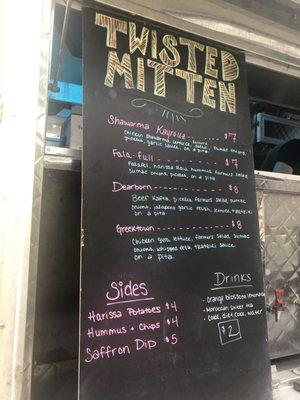 TWISTED
MITTEN
Shawarma Kayrouz $7
Chicken Shawarma, lettuce,
pickle, garlic sauce, on a pita
Fala-full $7
Falafel, harissa tahini hummus, farmers salad,
sumac onions, pickles, on a pita.
Dearborn $8
Beef Kafta, pickles, farmers salad, sumac
onions, jalapeno garlic relish, lettuce,
on a pita.
Greektown $8
Chicken gyro, lettuce, farmers salad, sumac
onions, whipped feta, tzatziki sauce
on a pita.
Sides
Harissa Potatoes $4
Hummus + Chips $4
Saffron Dip $5
Drinks
- Orange blossom lemonade
- Moroccan sweet tea
- Coke, diet coke, water
$2